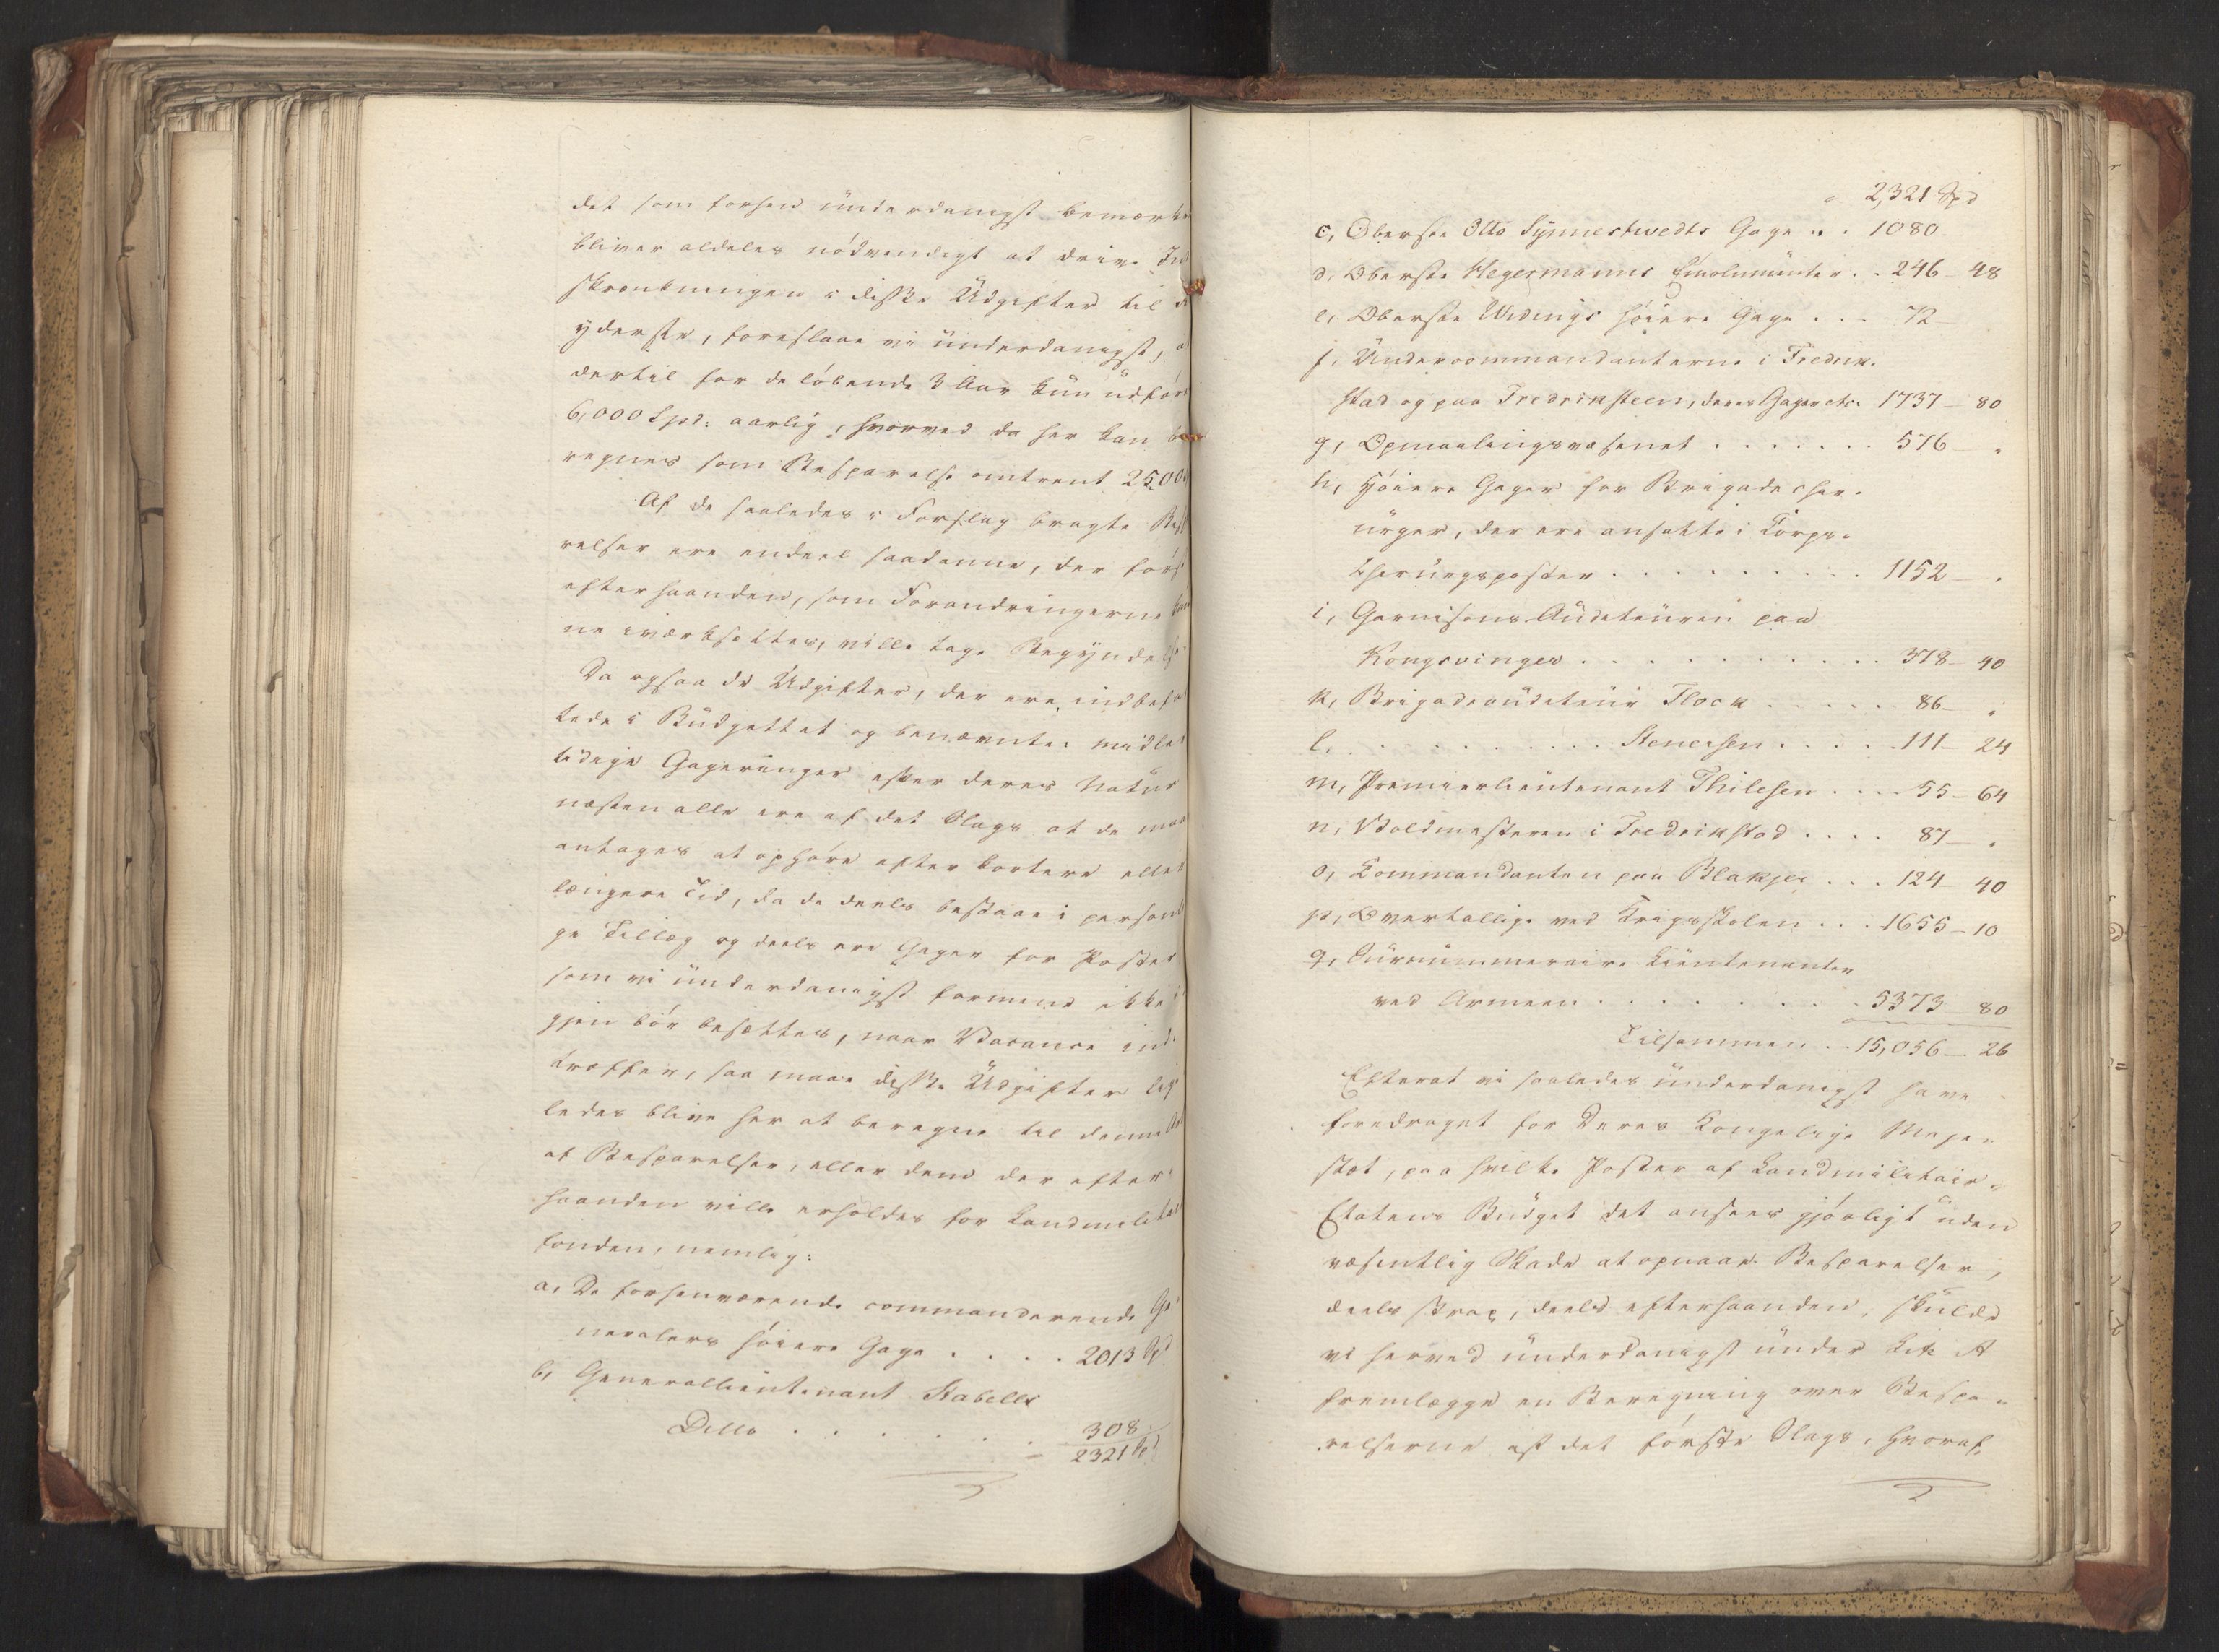 det som forhen underdanigst bemærke
bliver aldeles nödvendigt at drive In
skrænkningen i disse Udgifter til d
yderste, foreslaae vi underdanigst, a
dertil for de löbende 3 Aar kun udför
6,000 Spd: aarlig, hvorved da her kan be
regnes som Besparelse omtrent 25,00
Af de saaledes i Forslag bragte Bes
relser ere endeel saadanne, der förs
efterhaanden, som Forandringerne kun
ne iværksættes, ville tage Begyndelse.
Da ogsaa de Udgifter, der ere indbefa
tede i Budgettet og benævnte: midler
tidige Gageringer efter deres Natur
næsten alle ere af det Slags at de maa
antages at ophöre efter kortere eller
længere Tid, da de deels bestaae i personl
ge Tillæg og deels ere Gager for Poster
som vi underdanigst formene ikke i
gjen bör besættes, naar Vacance ind
træffer, saa maae disse Udgifter lig
ledes blive her at beregne til denne
af Besparelser, eller dem der efter
haanden ville erholdes for Landmilitai
fonden, nemlig:
a, De forhenværende commanderende Ge
neralers höiere Gage . . . . 2013 Spd
b, Generallieutenant Stabells
Ditto . . . . . . 308
2321 Spd
2,321 Spd
c, Oberste Otto Synnestwedts Gage . . . 1080
d, Oberste Hegermanns Emolumenter . . 246 - 48
e, Oberste Wedings höiere Gage . . . 72 -
f, Undercommandanterne i Fredrik-
stad og paa Fredriksteen, deres Gager etc. 1737 - 80
g, Opmaalingsvæsenet . . . . . . . 576 - "
h, Höiere Gager for Brigadechir-
urger, der ere ansatte i Corps-
Chirurgposter . . . . . . . . . 1152 - "
i, Garnisons Auditeuren paa
Kongsvinger . . . . . . . . . . 378 - 40
k, Brigadeauditeur Flock . . . . . 86 - "
l, . . . . . . . . . . Stenersen . . . . 111 - 24
m, Premierlieutenant Thilesen . . . . 55 - 64
n, Voldmesteren i Fredrikstad . . . . 87 - "
o, Commandanten paa Blakjer . . . 124 - 40
p, Overtallige ved Krigsskolen . . . 1655 - 10
q, Surnummeraire Lieutenanter
ved Armeen . . . . . . . . . 5373 - 80
Tilsammen . . 15,056 - 26
Efterat vi saaledes underdanigst have
foredraget for Deres Kongelige Maje-
stæt, paa hvilke Poster af Landmilitair-
Etatens Budget det ansees gjörligt uden
væsentlig Skade at opnaae Besparelser,
deels strax, deels efterhaanden, skulde
vi herved underdanigst under Litr A
fremlægge en Beregning over Bespa-
relserne af det förste Slags, hvoraf